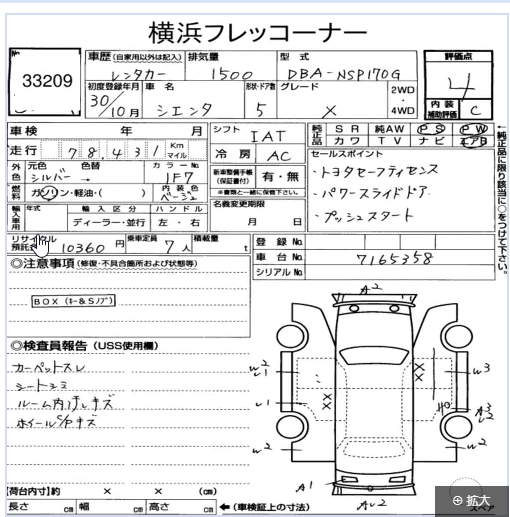 横浜フレッコーナー
33209
車歴(自家用以外は記入) 排気量 型式
レンタカー 1500 DBA-NSP170G
評価点
4
内装補助評価 C
初度登録年月 車名 形状・ドア数 グレード
30/10月 シエンタ 5 X
2WD・4WD
車検 年 月
シフト IAT
純正品 SR 純AW PS PW
カワ TV ナビ エアB
走行 78,431 Km マイル
冷房 AC
セールスポイント
・トヨタセーフティセンス
・パワースライドドア
・プッシュスタート
外色 元色 色替 カラーNo
シルバー → 1F7
新車整備手帳(保証書付) 有・無
※書類と一緒に保管下さい。
燃料 ガソリン・軽油・( ) 内装色 ベージュ
名義変更期限
月 日
輸入車用 年式 輸入区分 ハンドル
ディーラー・並行 左・右
リサイクル預託金 10360 円 乗車定員 7 人 積載量 t
登録No.
車台No. 7165358
シリアルNo.
←純正品に限り該当に○をつけて下さい。
◎注意事項(修復・不具合箇所および状態等)
BOX(キー&Sノブ)
◎検査員報告(USS使用欄)
カーペットスレ
シートシミ
ルーム内汚レキズ
ホイールC/Pキズ
A2
W2
U1
W3
U1
A3
W2
W2
A1
AU2
【荷台内寸】約 × × (cm)
長さ cm 幅 cm 高さ cm ←(車検証上の寸法)
拡大
スペア